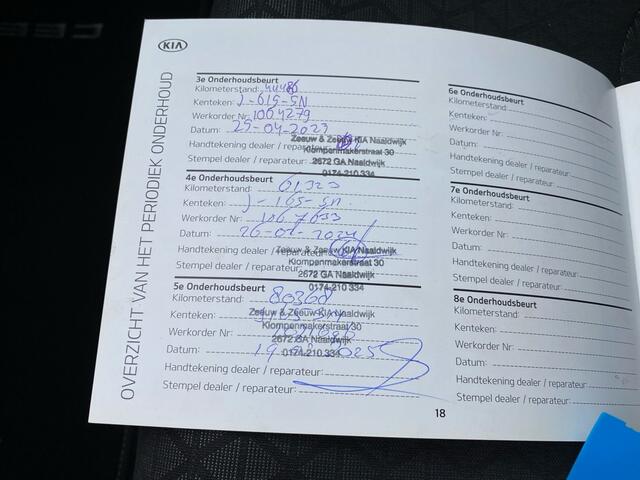 KIA
OVERZICHT VAN HET PERIODIEK ONDERHOUD
3e Onderhoudsbeurt
Kilometerstand:
Kenteken: J-615-SN
Werkorder Nr: 1064279
Datum: 25-04-2023
Handtekening dealer / reparateur:
Stempel dealer / reparateur:
Zeeuw & Zeeuw KIA Naaldwijk
Klompenmakerstraat 30
2672 GA Naaldwijk
0174-210 334
4e Onderhoudsbeurt
Kilometerstand: 61323
Kenteken: J-165-SN
Werkorder Nr: 1067633
Datum: 26-01-2024
Handtekening dealer / reparateur:
Stempel dealer / reparateur:
Zeeuw & Zeeuw KIA Naaldwijk
Klompenmakerstraat 30
2672 GA Naaldwijk
0174-210 334
5e Onderhoudsbeurt
Kilometerstand: 80368
Kenteken:
Werkorder Nr:
Datum: 19 2025
Handtekening dealer / reparateur:
Stempel dealer / reparateur:
Zeeuw & Zeeuw KIA Naaldwijk
Klompenmakerstraat 30
2672 GA Naaldwijk
0174-210 334
6e Onderhoudsbeurt
Kilometerstand:
Kenteken:
Werkorder Nr:
Datum:
Handtekening dealer / reparateur:
Stempel dealer / reparateur:
7e Onderhoudsbeurt
Kilometerstand:
Kenteken:
Werkorder Nr:
Datum:
Handtekening dealer / reparateur:
Stempel dealer / reparateur:
8e Onderhoudsbeurt
Kilometerstand:
Kenteken:
Werkorder Nr:
Datum:
Handtekening dealer / reparateur:
Stempel dealer / reparateur:
18